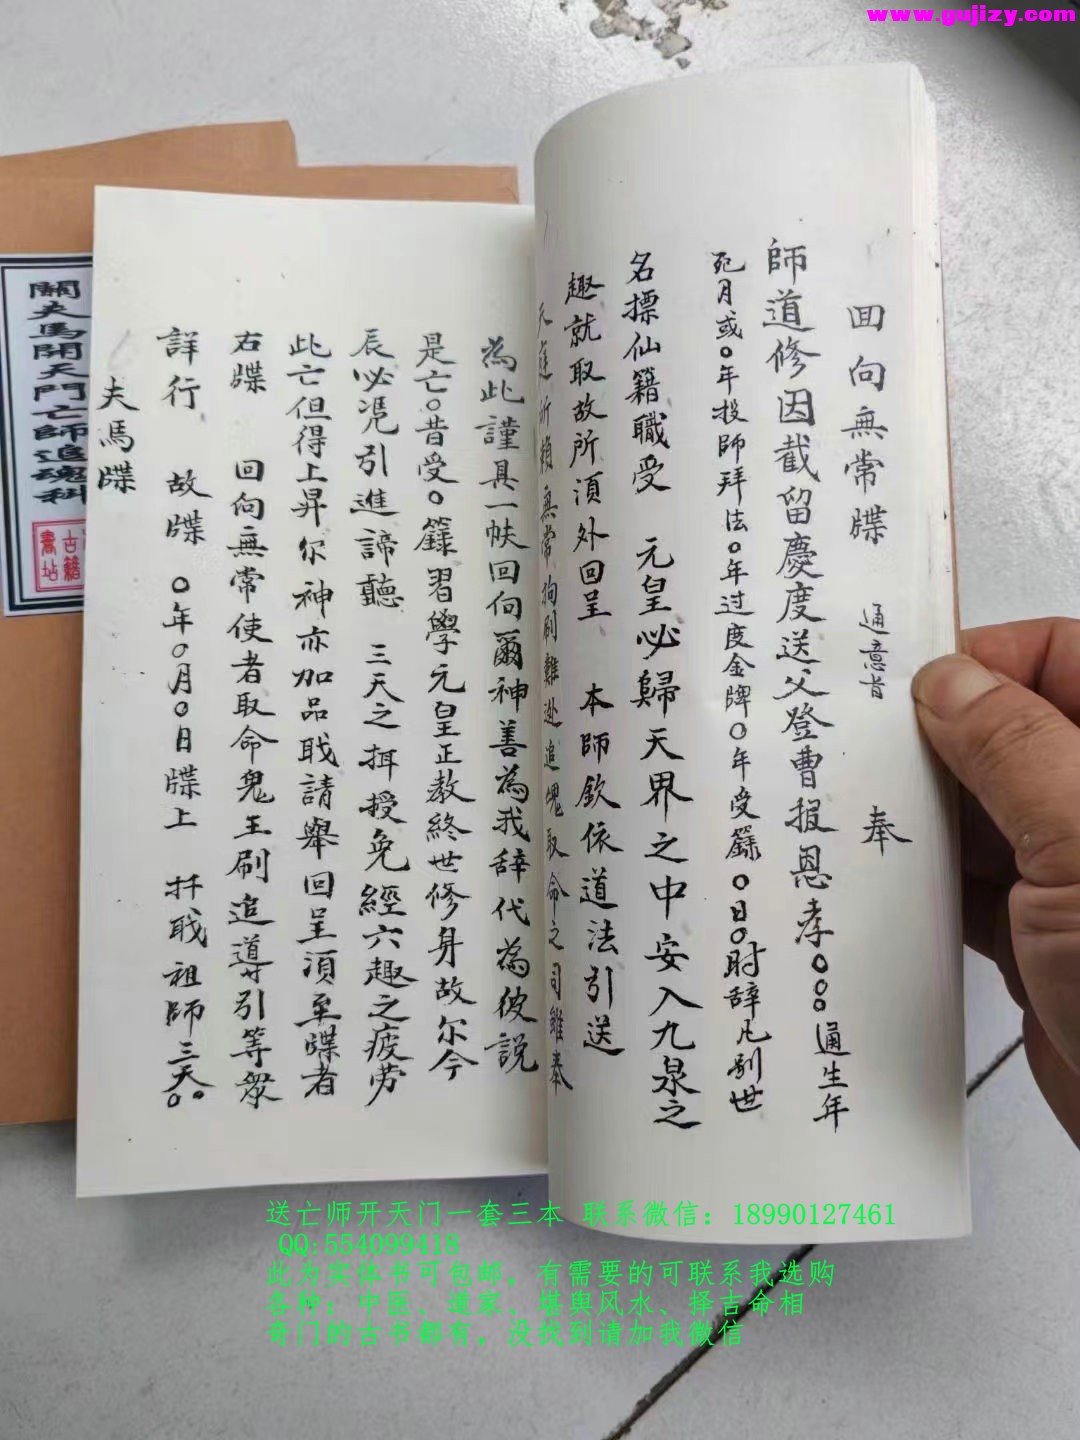 www.gujizy.com
回向無常牒 通意旨 奉
師道修因截留慶度送父登曹报恩孝○○○通生年
死月或○年投師拜法○年过度金牌○年受籙○日○時辞凡别世
名摽仙籍職受 元皇必歸天界之中安入九泉之
趣就取故所湏外回呈 本師欽依道法引送
天庭所賴無常拘刷難逃追魂取命之司雖奉
為此謹具一帙回向爾神善為我辞代為彼説
是亡○昔受○籙習學元皇正教終世修身故尔今
辰必凭引進諦聽 三天之拜授免經六趣之疲劳
此亡但得上昇尔神亦加品戝請舉回呈湏至牒者
右牒 回向無常使者取命鬼王刷追導引等眾
詳行 故牒 ○年○月○日牒上 扦戝祖師三天○○
夫馬牒
關夫馬開天門亡師追魂科
古籍書坫
送亡师开天门一套三本 联系微信：18990127461
QQ:554099418
此为实体书可包邮，有需要的可联系我选购
各种：中医、道家、堪舆风水、择吉命相
奇门的古书都有，没找到请加我微信